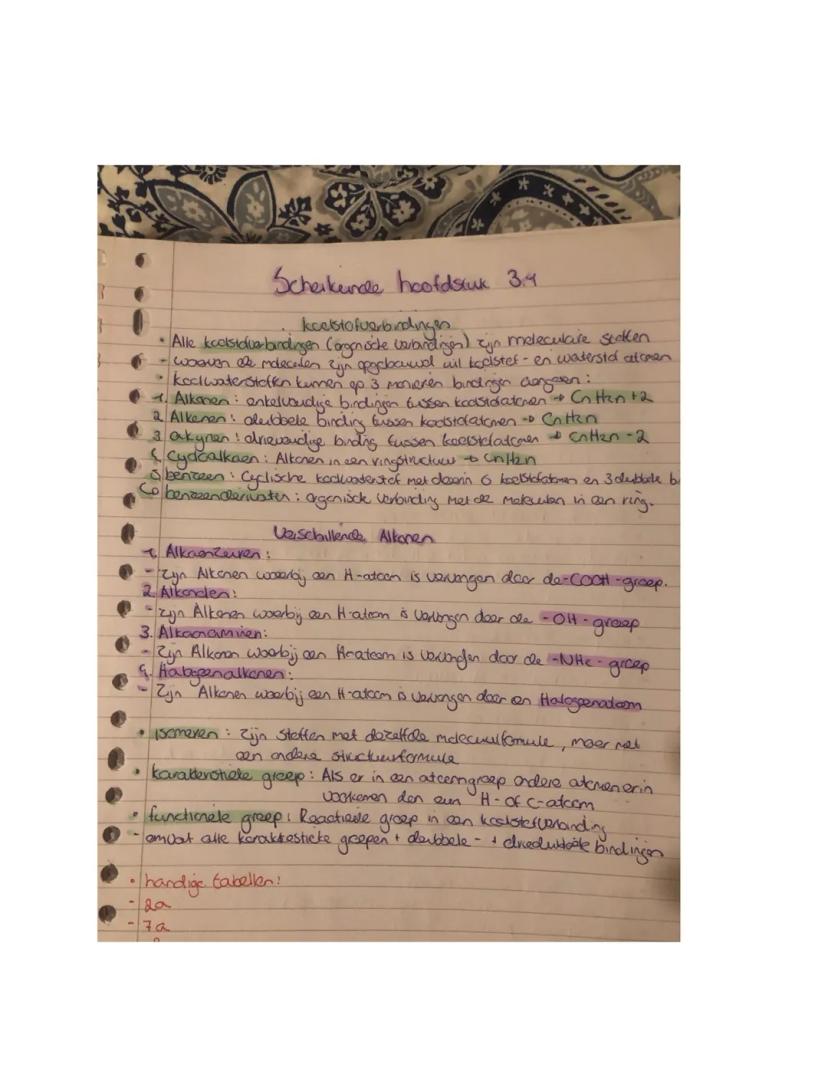 Scheikunde hoofdstuk 3.4
koolstofverbindingen
• Alle koolstofverbindingen (organische verbindingen) zijn moleculaire stoffen
- waarvan de moleculen zijn opgebouwd uit koolstof- en waterstof atomen
• koolwaterstoffen kunnen op 3 manieren bindingen aangaan:
1. Alkanen: enkelvoudige bindingen tussen koolstofatomen → CnH2n+2
2. Alkenen: dubbele binding tussen koolstofatomen → CnH2n
3. alkynen: drievoudige binding tussen koolstofatomen → CnH2n-2
4. Cycloalkaan: Alkanen in een ringstructuur → CnH2n
5 benzeen: Cyclische koolwaterstof met daarin 6 koolstofatomen en 3 dubbele b
6 benzeenderivaten: organisch verbinding met de moleculen in een ring.
Verschillende Alkanen
1. Alkaanzuren:
- Zijn Alkanen waarbij een H-atoom is vervangen door de -COOH-groep.
2. Alkanolen:
- Zijn Alkanen waarbij een H-atoom is vervangen door de -OH-groep
3. Alkaanaminen:
- Zijn Alkanen waarbij een H-atoom is vervangen door de -NH2-groep
4. Halogeenalkanen:
- Zijn Alkanen waarbij een H-atoom is vervangen door een Halogeenatoom
• isomeren: Zijn stoffen met dezelfde molecuulformule, maar met
een andere structuurformule
• karakteristieke groep: Als er in een atoomgroep andere atomen erin
voorkomen dan een H- of C-atoom
• functionele groep: Reactieve groep in een koolstofverbinding
- omvat alle karakteristieke groepen + dubbele- + driedubbele bindingen
• handige tabellen:
- 2a
- 7a